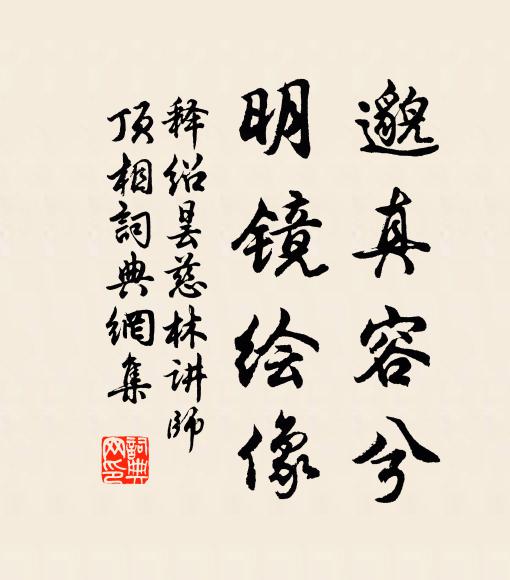 邈真容兮
明镜绘像
释绍昙慈林讲师
顶相詞典網集
詞典网印